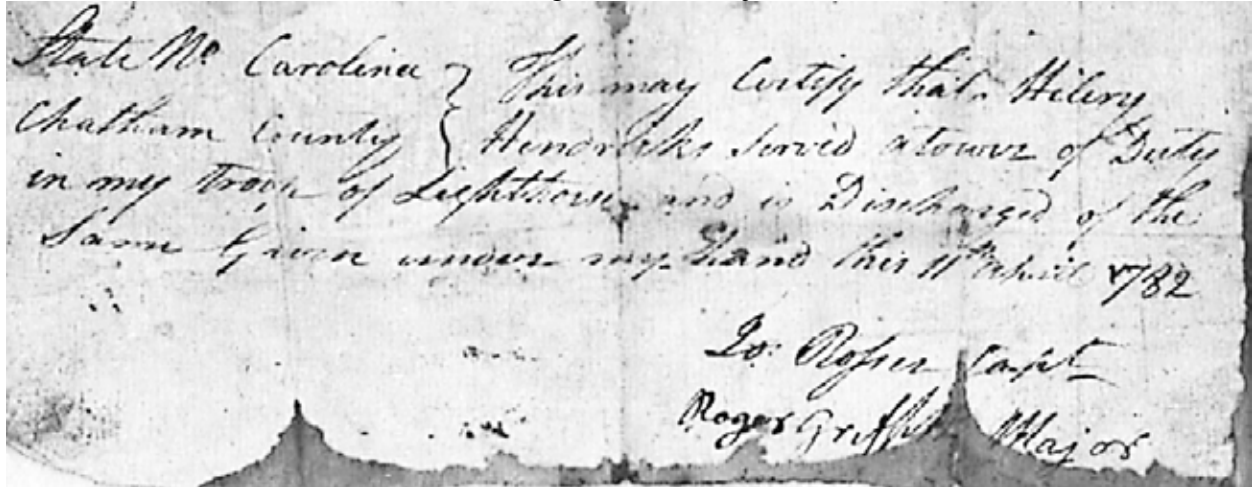 State No. Carolina } This may Certify that Hilery
Chatham County } Hendricks served a tower of Duty
in my troop of Lighthorse and is Discharged of the
Same Given under my hand this 11th April 1782
Jo: Rosser Capt
Roger Griffith Major